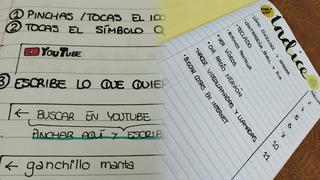 ① PINCHAS / TOCAS EL ICO
② TOCAS EL SÍMBOLO Q
YouTube
③ ESCRIBE LO QUE QUIER
← BUSCAR EN YOUTUBE
PINCHAR AQUÍ Y ESCRIB
← ganchillo manta
Indice
• TECLADO
• VER VÍDEOS
• OIR RADIO
• HACER VIDEOLLAMADAS Y LLAMADAS
• BUSCAR COSAS EN INTERNET
11